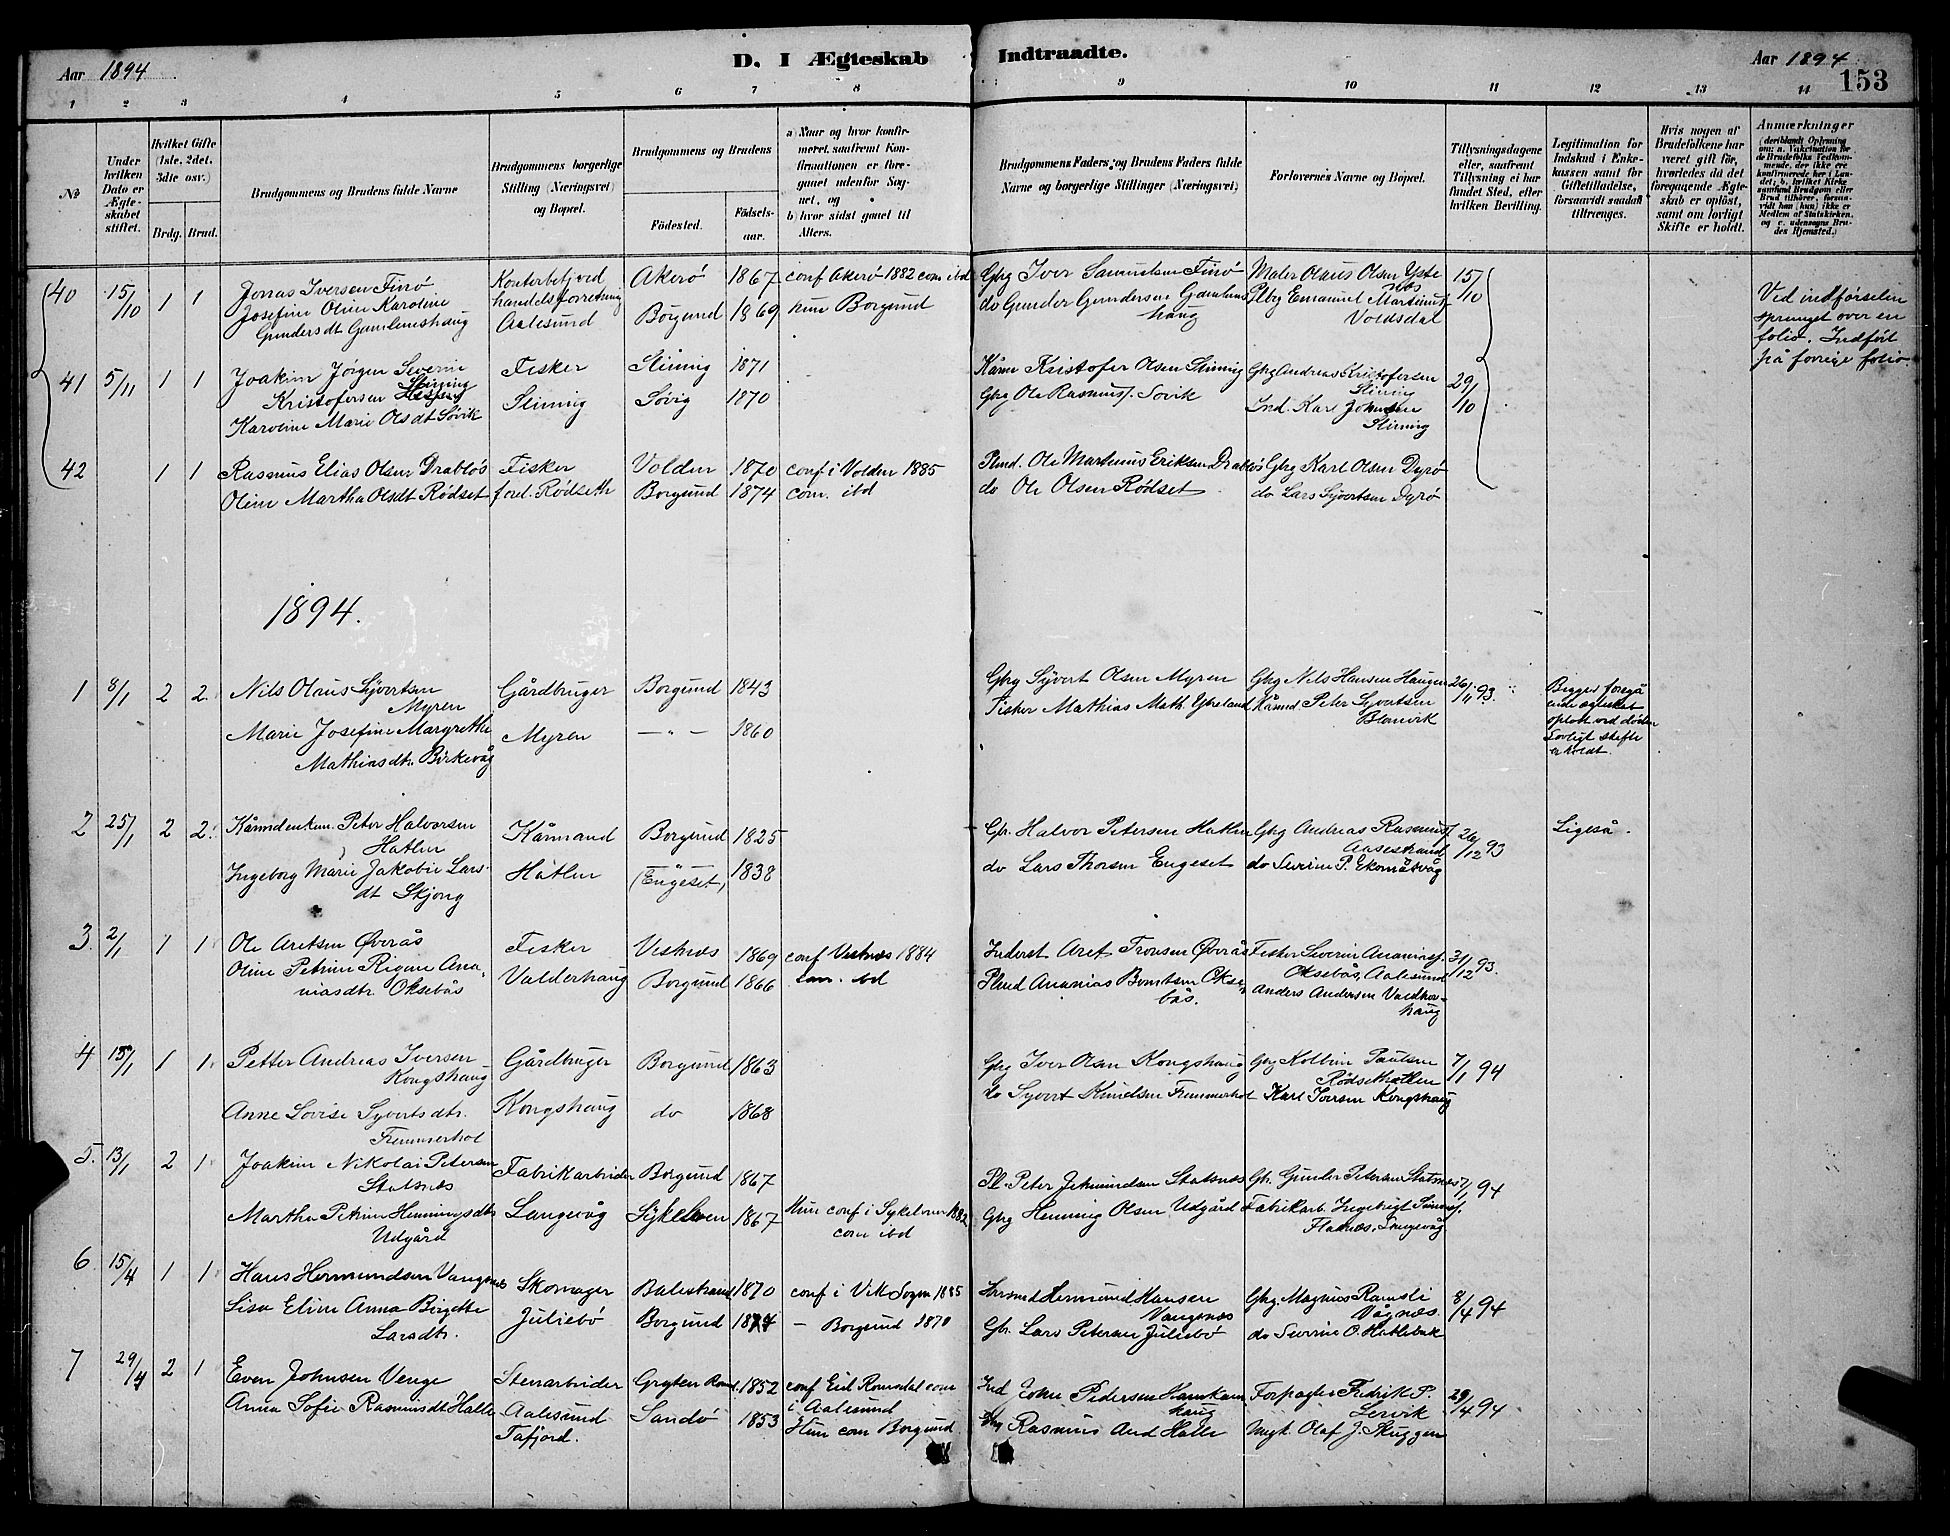 Aar 1894
D. I Ægteskab Indtraadte.
Aar 1894
153
1 2 3 4 5 6 7 8 9 10 11 12 13 14
No
Under hvilken Dato er Ægteskabet stiftet.
Hvilket Gifte (1ste, 2det, 3die osv.)
Brdg. Brud.
Brudgommens og Brudens fulde Navne
Brudgommens borgerlige Stilling (Næringsvei) og Bopæl.
Brudgommens og Brudens
Fødested.
Fødselsaar.
a) Naar og hvor konfirmeret, saafremt Konfirmationen er foregaaet udenfor Sognet, og
b) hvor sidst gaaet til Alters.
Brudgommens Faders og Brudens Faders fulde Navne og borgerlige Stillinger (Næringsvei)
Forlovernes Navne og Bopæl.
Tillysningsdagene eller, saafremt Tillysning ei har fundet Sted, efter hvilken Bevilling.
Legitimation for Indskud i Enkekassen samt for Giftetilladelse, forsaavidt saadan tiltrænges.
Hvis nogen af Brudefolkene har været gift før, hvorledes da det foregaaende Ægteskab er opløst, samt om lovligt Skifte er holdt.
Anmærkninger
(deriblandt Oplysning om: a. Vakcination for de Brudefolks Vedkommende, der ikke ere konfirmerede her i Landet; b. hvilket Kirkesamfund Brudgom eller Brud tilhører, forsaavidt han (hun) ikke er Medlem af Statskirken, og c. udensogns Brudes Hjemsted.)
40 15/10 1 1 Jonas Iversen Finö Kontorbetjend Akerö 1867 conf Akerö 1882 com ibd Gbrg Iver Samuelsen Finö Maler Olaus Olsen Ystenes 15/10
Josefine Oline Karoline handelsforretning Borgund 1869 hun Borgund do Gunder Gundersen Gamlemshaug Plbrg Emanuel Martinusf. Voldsdal
Gundersdt Gamlemshaug Aalesund
Ved indförselen
sprunget over en
folio. Indfört
på forrige folio.
41 5/11 1 1 Joakim Jörgen Severin Fisker Slinning 1871 Kårm Kristofer Olsen Slinning Gbrg Andreas Kristofersen Slinning 29/10
Kristofersen Slinning Slinning Sövig 1870 Gbrg Ole Rasmusf. Sövik Ind. Karl Johnsen Slinning
Karoline Marie Olsdt Sövik
42 1 1 Rasmus Elias Olsen Drablös Fisker Volden 1870 conf i Volden 1885 Plmd. Ole Martinus Eriksen Drablös Gbrg Karl Olsen Dyrö
Oline Martha Olsdt Rödset forel. Rödseth Borgund 1874 com. ibd do Ole Olsen Rödset do Lars Sjvertsen Dyrö
1894.
1 8/1 2 2 Nils Olaus Sjvertsen Myren Gårdbruger Borgund 1843 Gbrg Sjvert Olsen Myren Gbrg Nils Hansen Haugen 26/11 93.
Marie Josefine Margrethe Myren — „ — 1860 Fisker Mathias Math. Ytreland Kårmd Peter Sjvertsen Blomvik
Mathiasdtr. Birkevåg
Begges foregå
ende ægteskab
oplöst ved döden
Lovligt skifte
er holdt.
2 25/1 2 2 Kårmdenkem. Peter Halvorsen Hatlen Kårmand Borgund 1825 Gbr. Halvor Petersen Hatlen Gbrg Andreas Rasmusf. Aasestrand 26/12 93 Ligeså.
Ingeborg Marie Jakobie Larsdt Skjong Hatlen (Engeset) 1838 do Lars Thorsen Engeset do Severin P. Ekornåsvåg
3. 2/1 1 1 Ole Aretsen Øvrås Fisker Vestnes 1869 conf Vestnes 1884 Inderst Aret Tronsen Øvrås Fisker Severin Ananiasf. Oksebås, Aalesund 31/12 93.
Oline Petrine Rigine Ananiasdtr. Oksebås Valderhaug Borgund 1866 com. ibd Plmd Ananias Berntsen Oksebås. Anders Andersen Valderhaug
4 15/1 1 1 Petter Andreas Iversen Kongshaug Gårdbruger Borgund 1863 Gbrg Iver Olsen Kongshaug Gbrg Kolbein Paulsen Rödsethatlen 7/1 94
Anne Lovise Syvertsdtr. Fremmerhol Kongshaug do 1868 do Syvert Knudsen Fremmerhol Karl Iversen Kongshaug
5. 13/1 2 1 Joakim Nikolai Petersen Statsnes Fabrikarbeider Borgund 1867 Pl. Peter Jetmundsen Statsnes Gbr. Gunder Petersen Statsnes 7/1 94
Martha Petrine Henningsdtr Udgård Langevåg Sykelven 1867 Hun conf i Sykelven 1882 com ibd Gbrg Henning Olsen Udgård Fabrikarb. Ingebrigt Simonsf. Flatnes, Langevåg
6 15/4 1 1 Hans Hermundsen Vangsnes Skomager Balestrand 1870 conf i Vik Sogn 1885 Hermund Hansen Vangsnes Gbrg. Magnus Ramsli Vågnæs. 8/4 94
Lisa Eline Anna Birgitte Larsdtr. Juliebö Borgund 1874 — Borgund Gbr. Lars Petersen Juliebö do Severin O. Hatlebak
7 29/4 2 1 Even Johnsen Venge Stenarbeider Gryten Romsd. 1852 conf Eid Romsdal com i Aalesund Ind John Pedersen Hamkamhaug Forpagter Fredrik P. Lervik 29/4 94
Anna Sofie Rasmusdt Halle Aalesund Sandö 1853 Hun com Borgund Gbrg Rasmus And Halle Ungk. Olaf J. Skuggen
Tafjord.